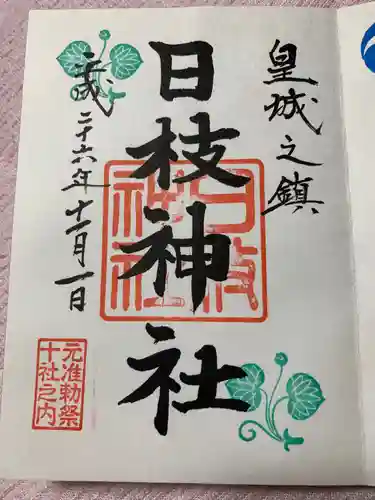 皇城之鎮
日枝神社
日枝神社
平成二十六年十一月一日
元准勅祭
十社之内